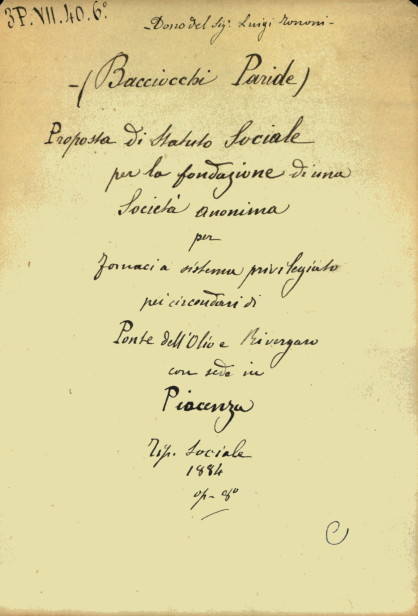 3P. VII. 40. 6º
Dono del Sig. Luigi
-(Bacciocchi Paride)
Proposta di Statuto Sociale
per la fondazione di una
Società anonima
per
fornaci a sistema privilegiato
pei circondari di
Ponte dell'Olio e Rivergaro
con sede in
Piacenza
Tip. Sociale
1884
op- 8º
C